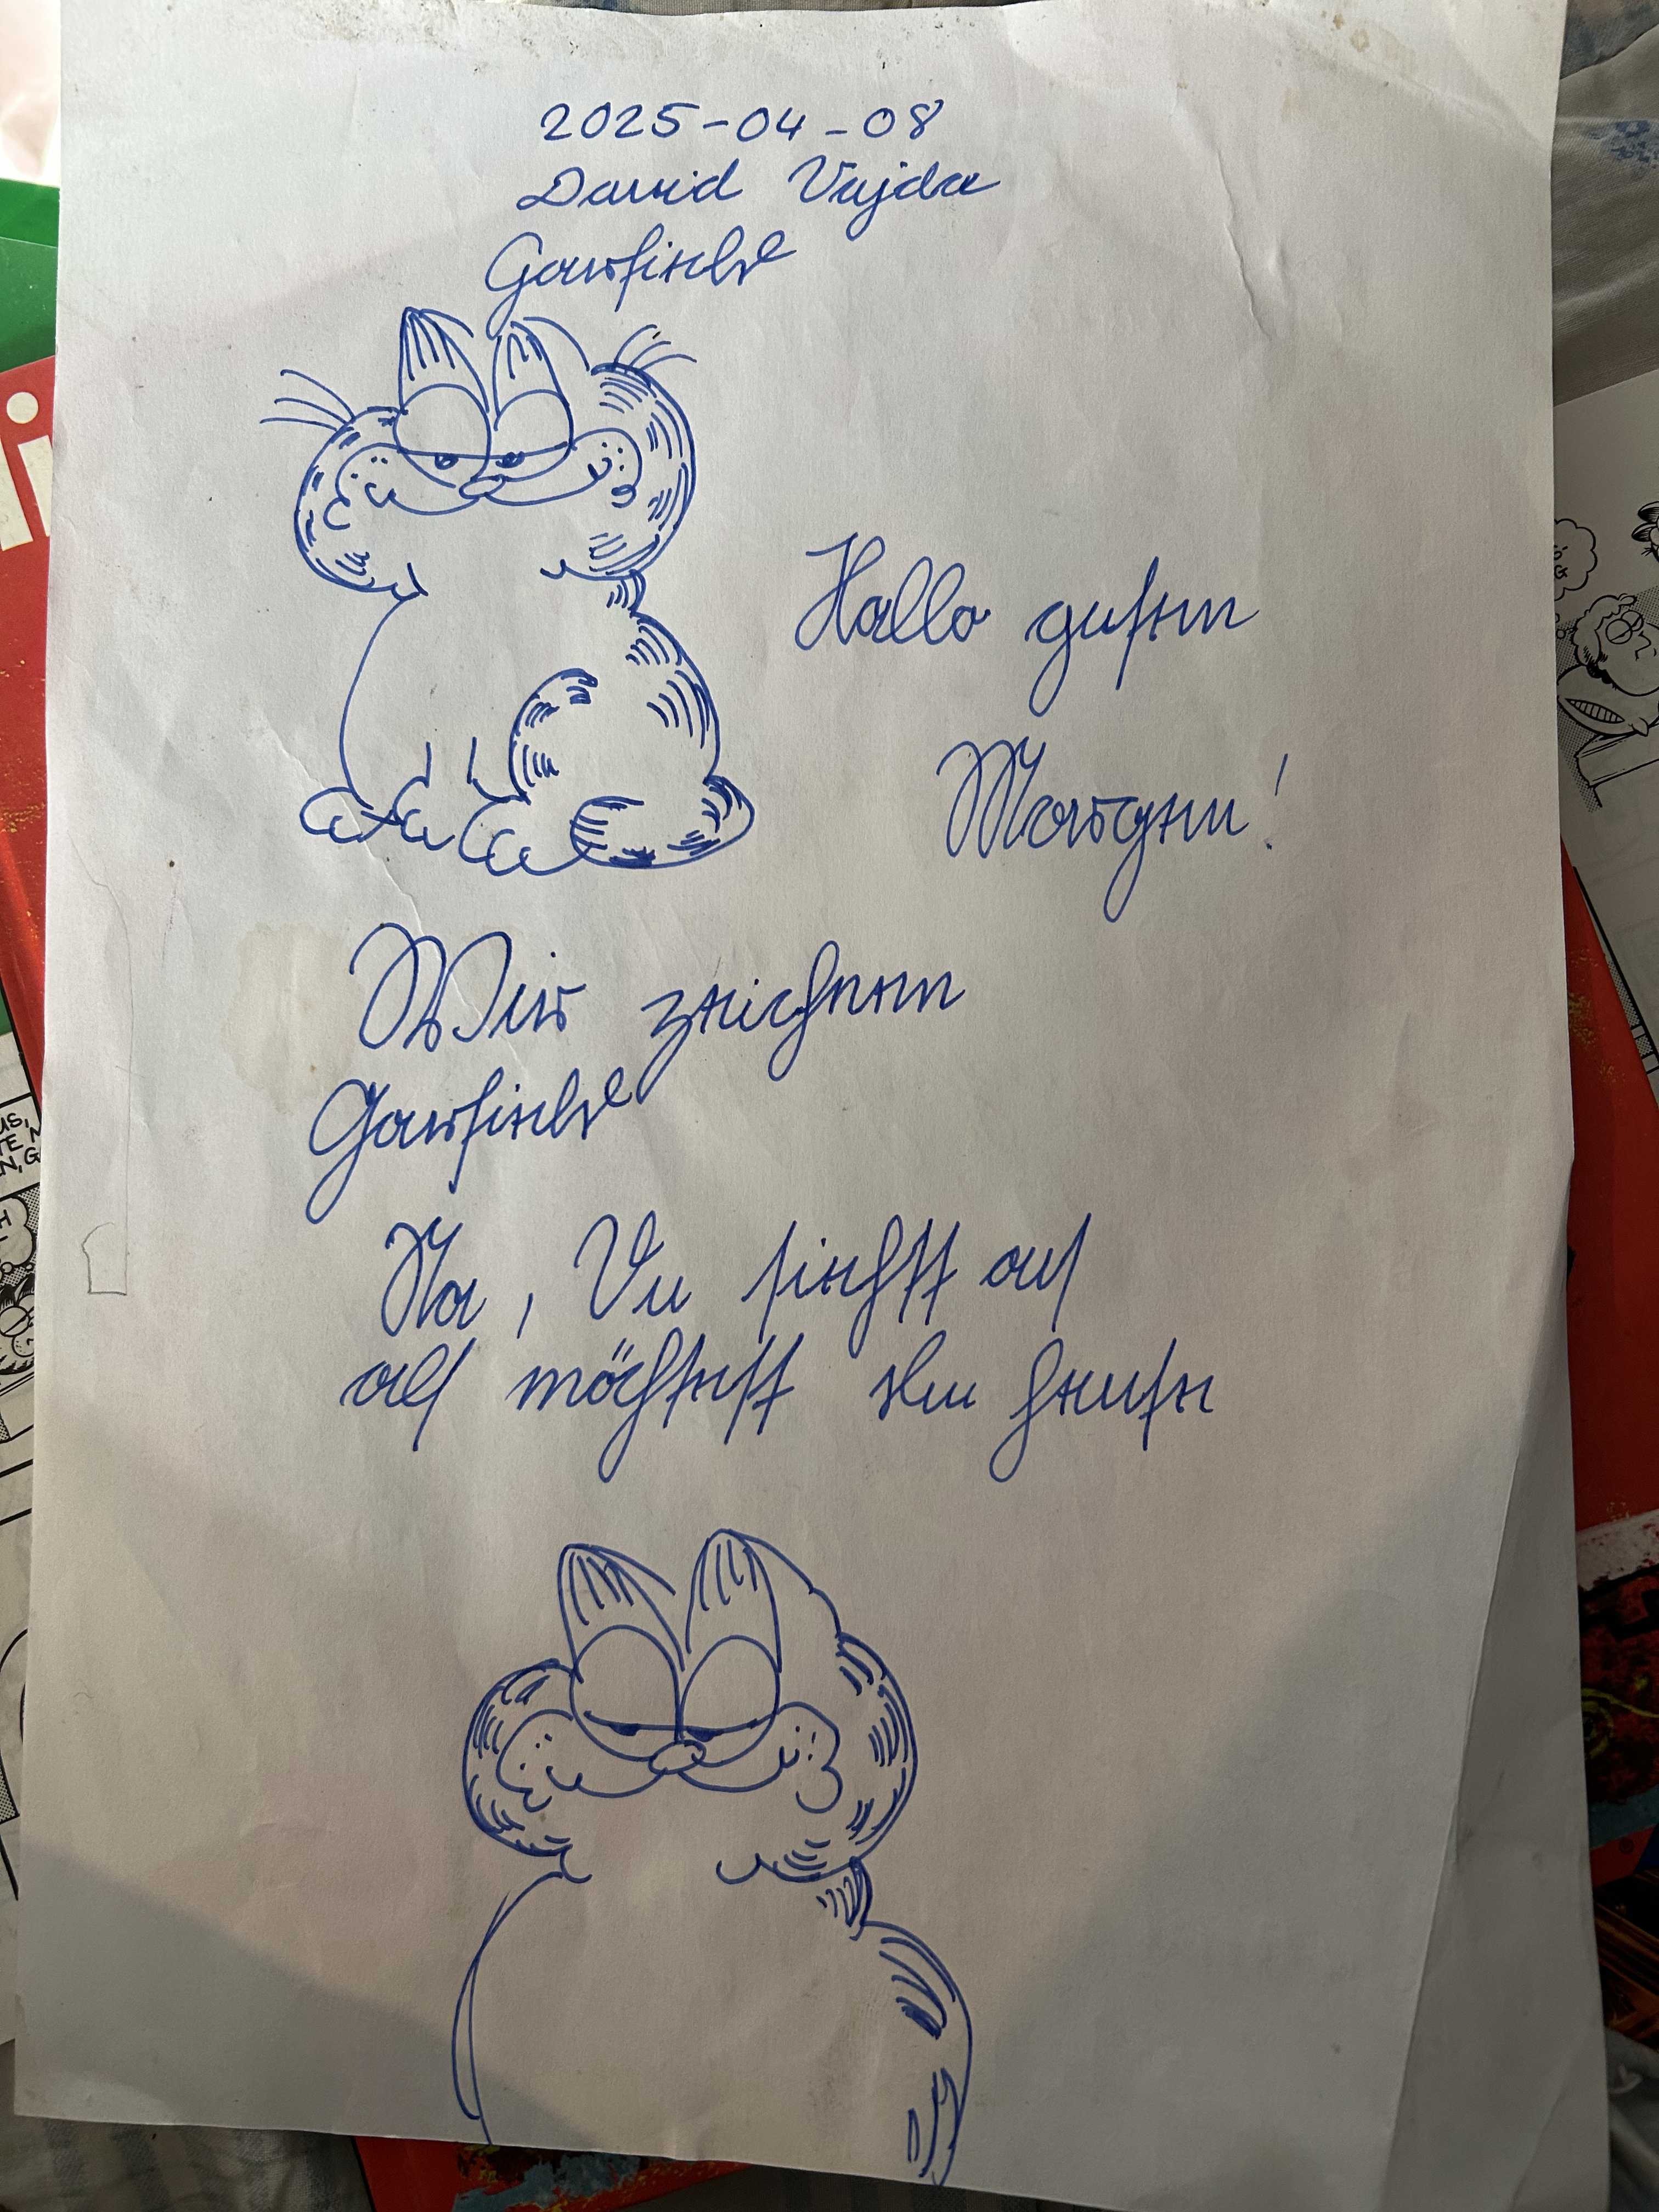 2025-04-08
David Vajda
Garfield
Hallo guten
Morgen!
Wir zeichnen
Garfield
Na, Du siehst aus
als möchtest du heute